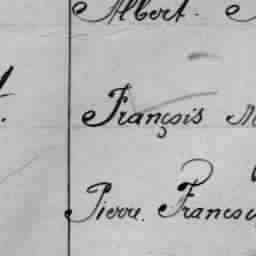 Albert.
François
Pierre. Franços